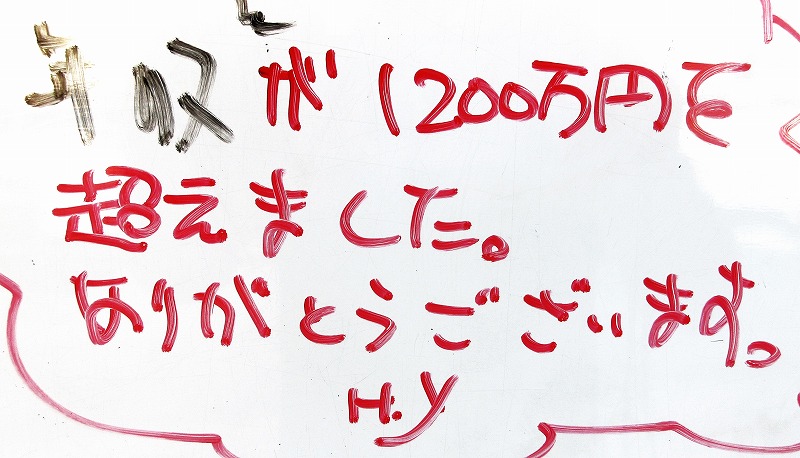 年収が1200万円を
超えました。
ありがとうございます。
H.Y